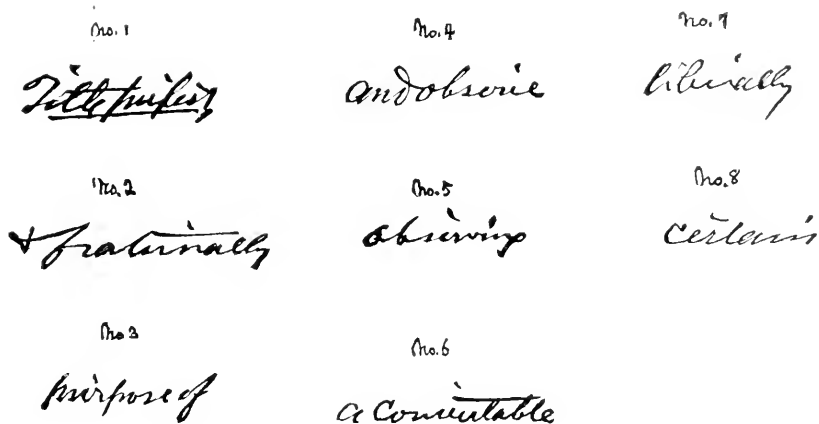 No. 1
Title perfect
No. 2
& fraternally
No 3
purpose of
No. 4
and observe
No. 5
observing
No. 6
a Convertable
No. 7
liberally
No. 8
certain